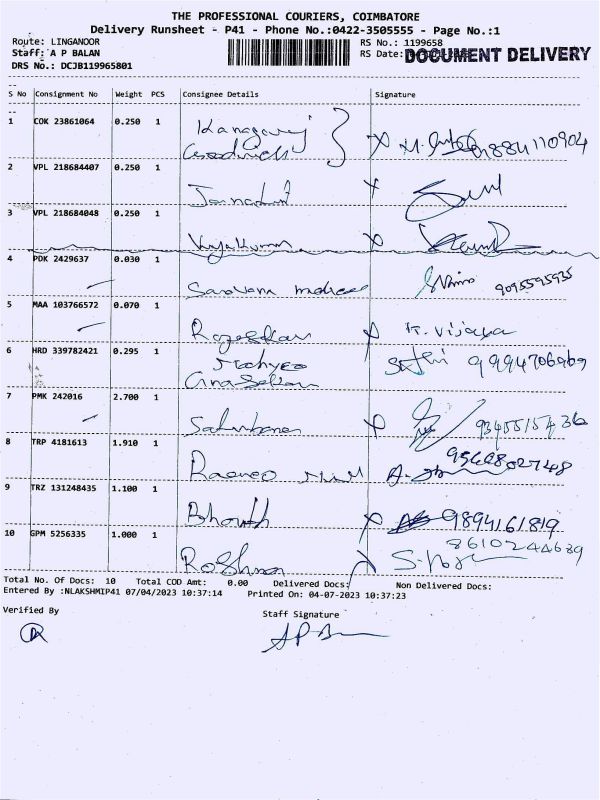 THE PROFESSIONAL COURIERS, COIMBATORE
Delivery Runsheet - P41 - Phone No.:0422-3505555 - Page No.:1
Route: LINGANOOR RS No.: 1199658
Staff: A P BALAN RS Date: DOCUMENT DELIVERY
DRS No.: DCJB119965801
S No Consignment No Weight PCS Consignee Details Signature
1 COK 23861064 0.250 1 Kanagaraj
Goodwill
2 VPL 218684407 0.250 1
3 VPL 218684048 0.250 1 Vijaykumar
4 PDK 2429637 0.030 1 Saravana medicals 9095595935
5 MAA 103766572 0.070 1 Rajasekar K. Vijaya
6 HRD 339782421 0.295 1 Sathi 9994706969
7 PMK 242016 2.700 1 9345515436
8 TRP 4181613 1.910 1 Mill
9 TRZ 131248435 1.100 1 Bharath 9894161819
10 GPM 5256335 1.000 1 Roshman 8610244639
Total No. Of Docs: 10 Total COD Amt: 0.00 Delivered Docs: Non Delivered Docs:
Entered By :NLAKSHMIP41 07/04/2023 10:37:14 Printed On: 04-07-2023 10:37:23
Verified By Staff Signature